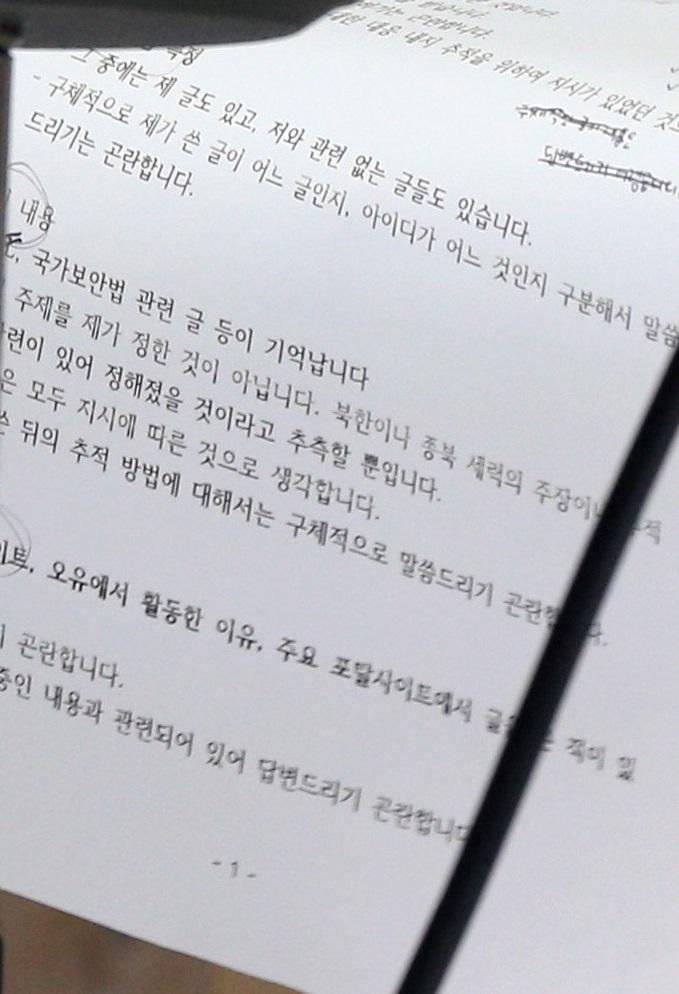 곤란합니다.
내용 내지 추적을 위하여 지시가 있었던
특정
그 중에는 제 글도 있고, 저와 관련 없는 글들도 있습니다.
- 구체적으로 제가 쓴 글이 어느 글인지, 아이디가 어느 것인지 구분해서 말씀
드리기는 곤란합니다.
내용
국가보안법 관련 글 등이 기억납니다
주제를 제가 정한 것이 아닙니다. 북한이나 종북 세력의 주장이나
있어 정해졌을 것이라고 추측할 뿐입니다.
은 모두 지시에 따른 것으로 생각합니다.
뒤의 추적 방법에 대해서는 구체적으로 말씀드리기 곤란합니다.
오유에서 활동한 이유, 주요 포탈사이트에서 적이
곤란합니다.
중인 내용과 관련되어 있어 답변드리기 곤란합니다
- 1 -